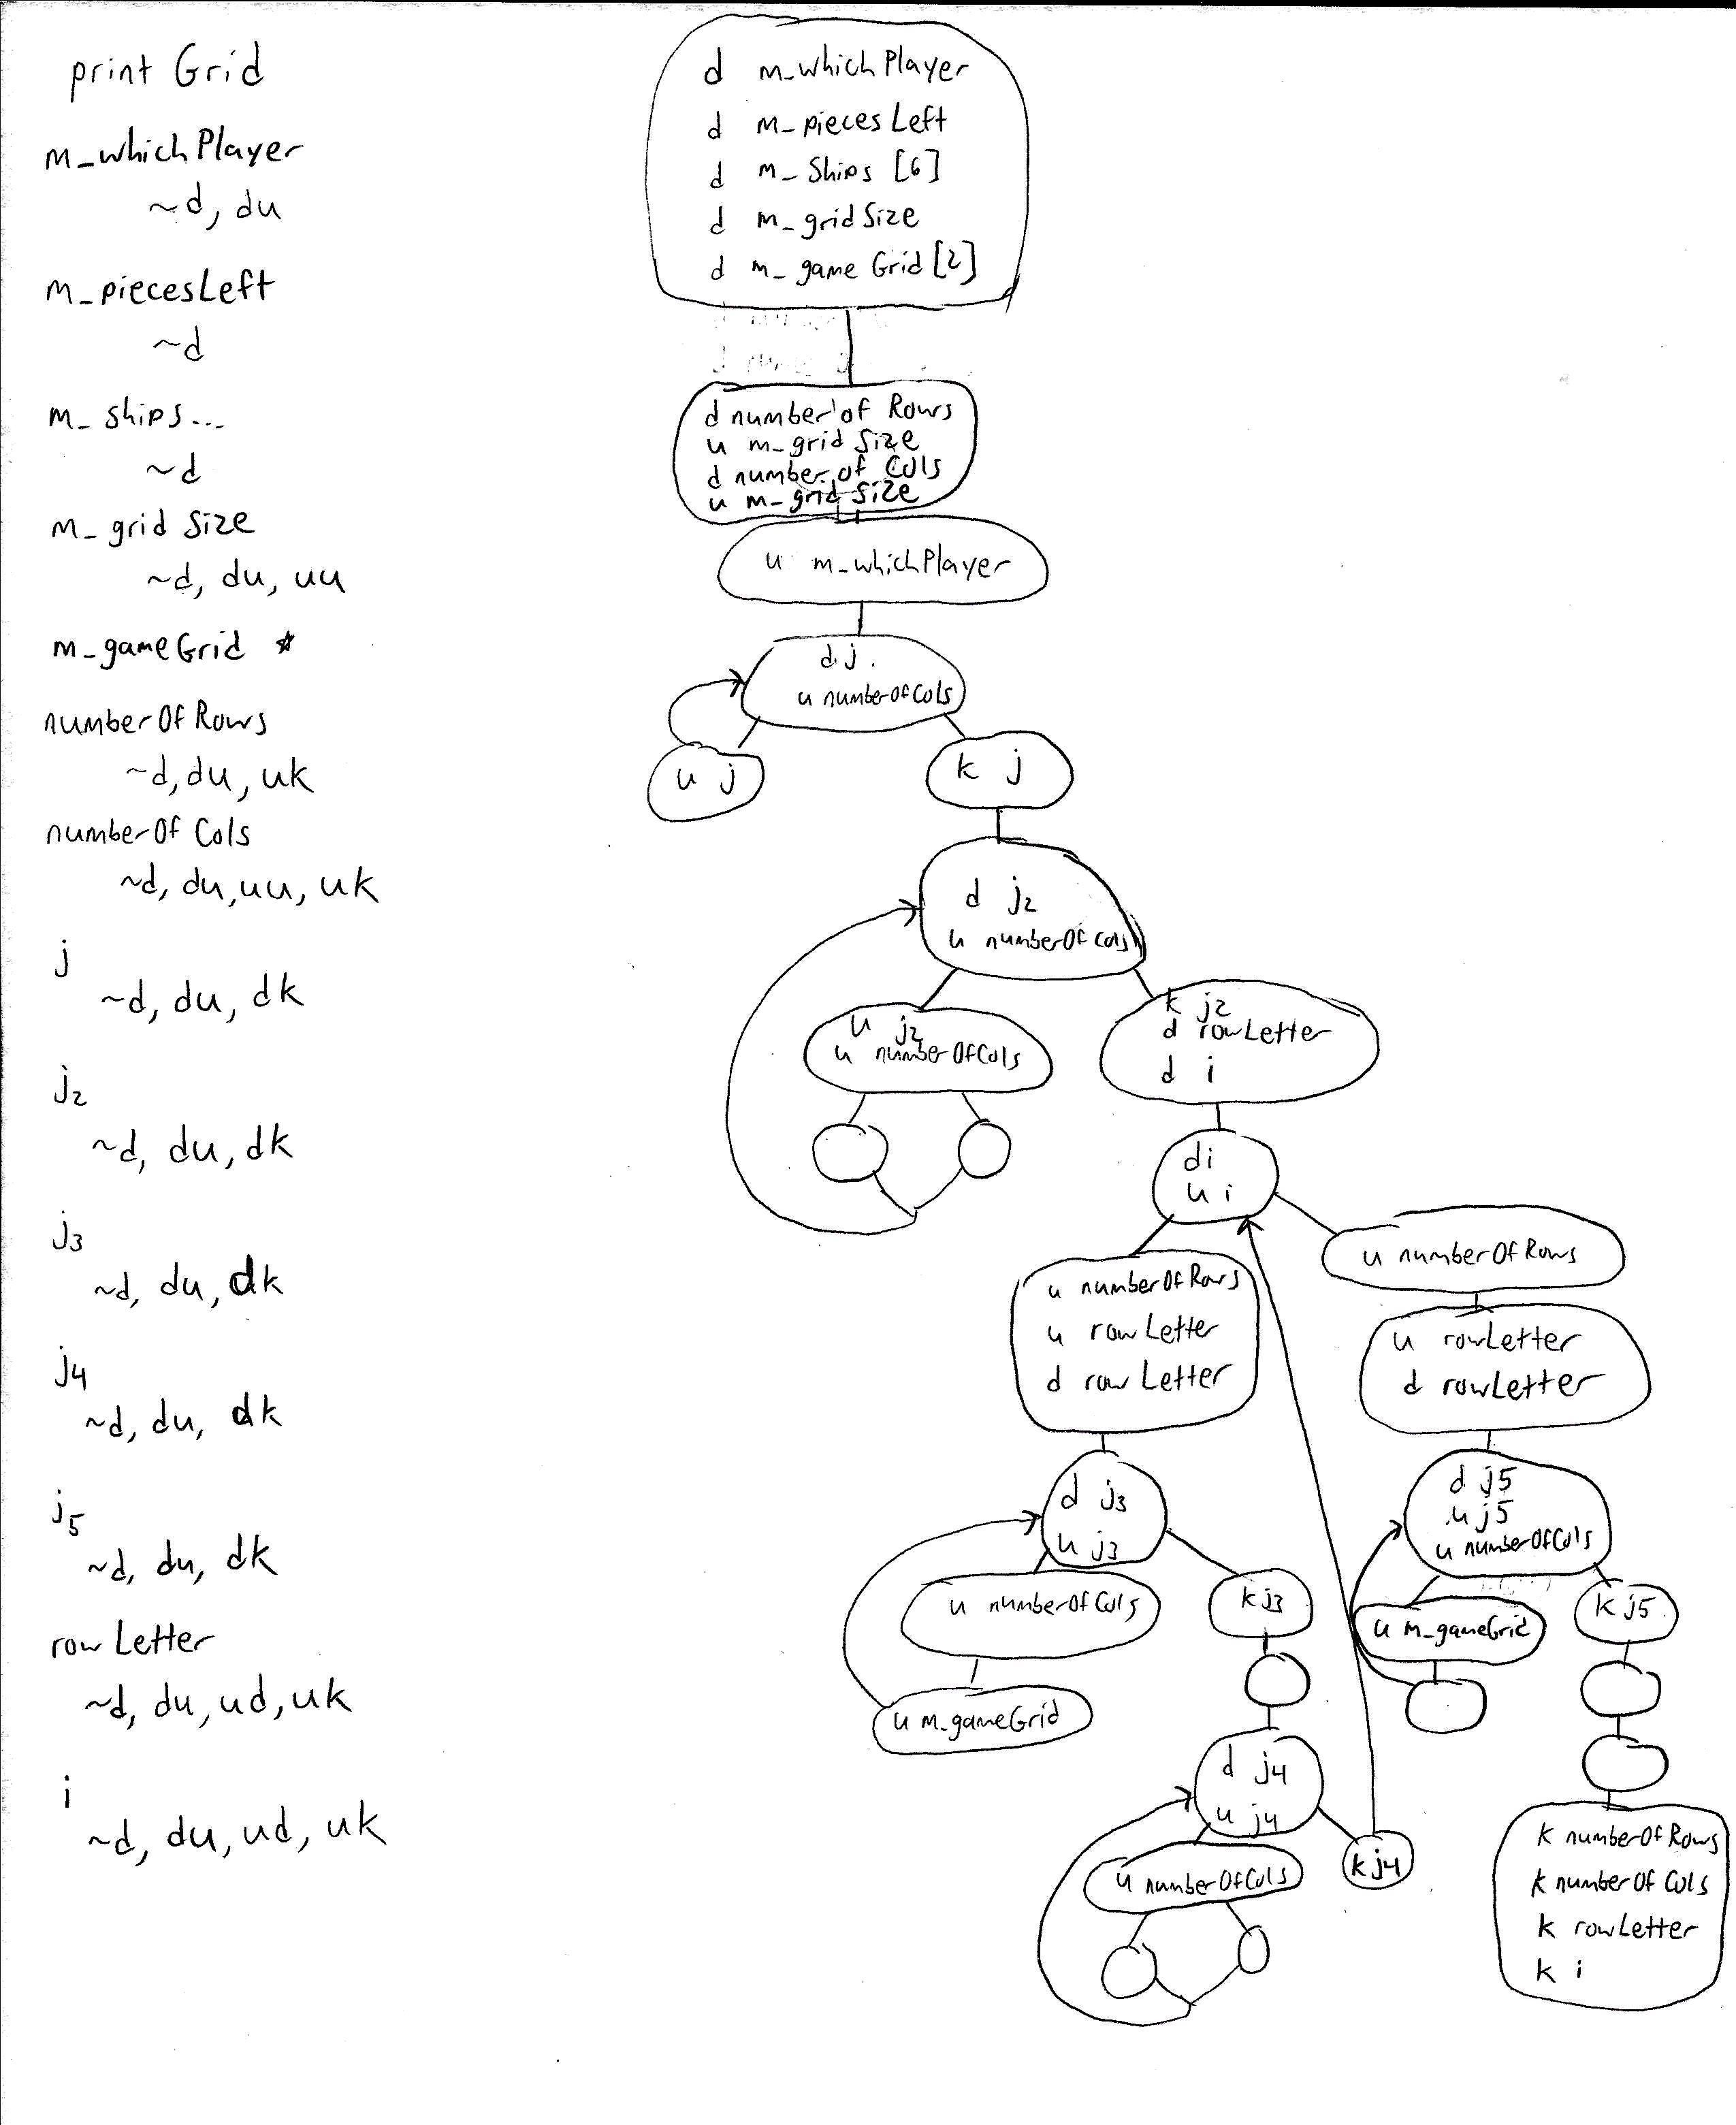 print Grid
m_whichPlayer
~d, du
m_piecesLeft
~d
m_ships...
~d
m_grid Size
~d, du, uu
m_gameGrid ☆
numberOfRows
~d, du, uk
numberOf Cols
~d, du, uu, uk
j
~d, du, dk
j2
~d, du, dk
j3
~d, du, dk
j4
~d, du, dk
j5
~d, du, dk
row Letter
~d, du, ud, uk
i
~d, du, ud, uk
d m_whichPlayer
d m_pieces Left
d m_Ships [6]
d m_grid Size
d m_game Grid [2]
d number of Rows
u m_grid Size
d number of Cols
u m_grid size
u m_whichPlayer
d j
u numberOfCols
u j
k j
d j2
u numberOfCols
u j2
u numberOfCols
k j2
d rowLetter
d i
di
u i
u numberOfRows
u row Letter
d row Letter
u numberOfRows
u rowLetter
d rowLetter
d j3
u j3
u numberOfCols
u m_gameGrid
k j3
d j4
u j4
u numberOfCols
k j4
d j5
u j5
u numberOfCols
u m_gameGrid
k j5
k numberOfRows
k numberOf Cols
k rowLetter
k i